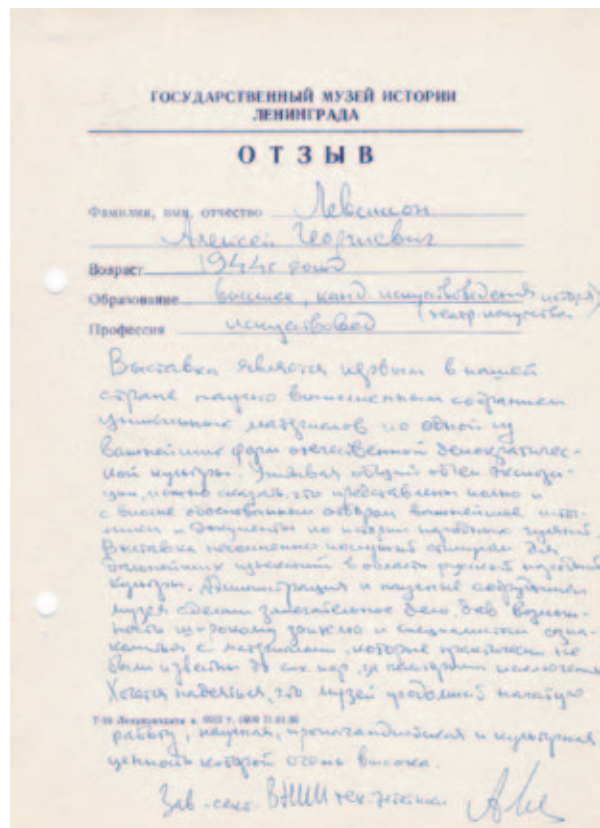 ГОСУДАРСТВЕННЫЙ МУЗЕЙ ИСТОРИИ
ЛЕНИНГРАДА
ОТЗЫВ
Фамилия, имя, отчество
Алексей Георгиевич
Возраст 1944 г. рожд
Образование высшее, канд. искусствоведения
Профессия искусствовед
Выставка является первым в нашей
стране научно выполненным собранием
уникальных материалов по одной из
важнейших форм отечественной демократичес-
кой культуры. Учитывая общий объем экспози-
ции, можно сказать, что представлены полно и
с вполне обоснованным отбором важнейшие источ-
ники и документы по истории народных гуляний.
Выставка несомненно послужит стимулом для
дальнейших изысканий в области русской народной
культуры. Администрация и научные сотрудники
музея сделали замечательное дело, дав возмож-
ность широкому зрителю и специалистам озна-
комиться с материалами, которые практически не
были известны до сих пор, за частными исключен
Хочется надеяться, что музей продолжит начатую
работу, научная, пропагандийская и культурная
ценность которой очень высока.
Зав. сект. ВНИИ тех. эстетики